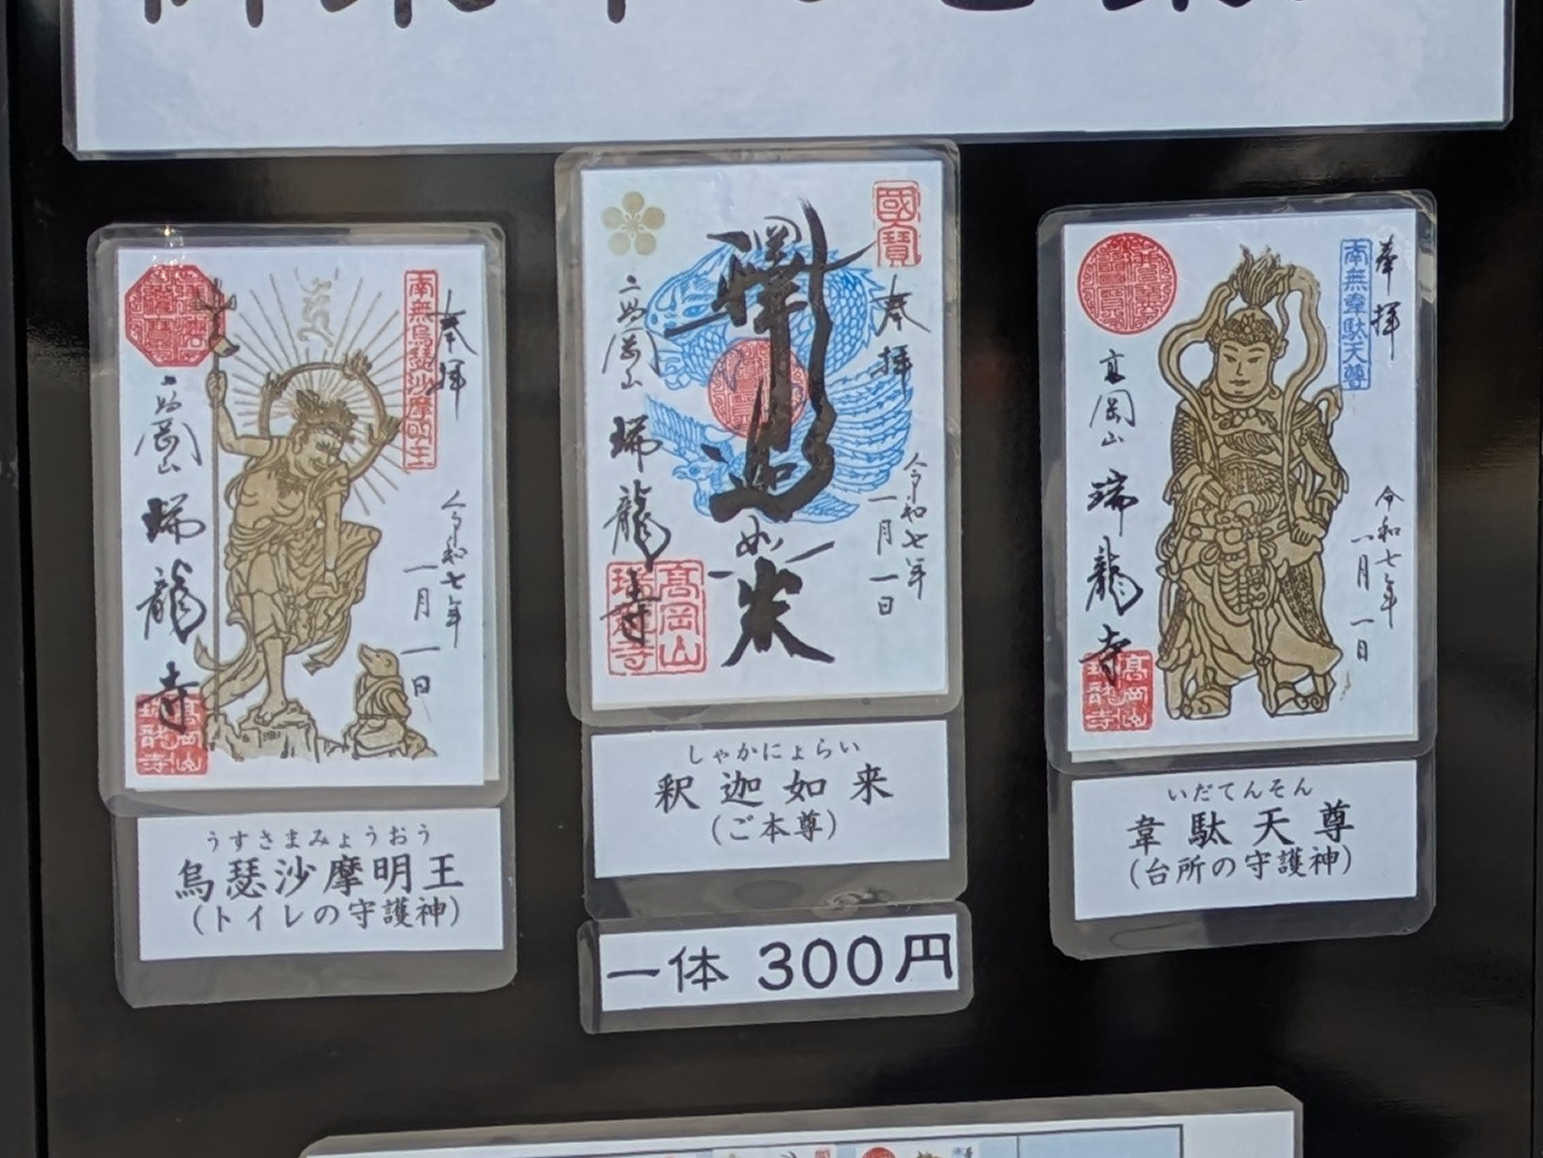 奉拝
南無烏瑟沙摩明王
令和七年
一月一日
高岡山
瑞龍寺
高岡山
瑞龍寺
うすさまみょうおう
烏瑟沙摩明王
(トイレの守護神)
國寶
奉拝
釋迦如来
令和七年
一月一日
高岡山
瑞龍寺
高岡山
瑞龍寺
しゃかにょらい
釈迦如来
(ご本尊)
一体 300円
奉拝
南無韋駄天尊
令和七年
一月一日
高岡山
瑞龍寺
高岡山
瑞龍寺
いだてんそん
韋駄天尊
(台所の守護神)